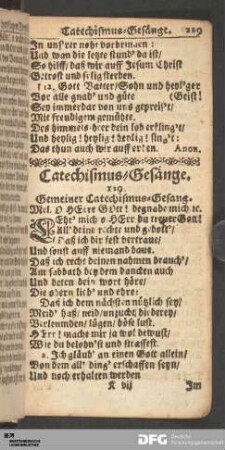 Catechismus-Gesänge. 229
In uns'rer noht vorbringen:
Und wan die letzte stund' da ist/
So hilff/ daß wir auff Jesum Christ
Getrost und selig sterben.
12. Gott Vatter/ Sohn und heyl'ger
Vor alle gnad' und güte (Geist!
Sey immerdar von uns gepreis't/
Mit freudigem gemühte.
Des himmels-heer dein lob erkling't/
Und heylig! heylig! heylig! sing't:
Das thun auch wir auff erden. Anon.
Catechismus-Gesänge.
119.
Gemeiner Catechismus-Gesang.
Mel. O HErre GOtt! begnade mich/ ꝛc.
Lehr' mich o HErr du treuer Gott!
All' deine rechte und gebott'/
Daß ich dir fest vertraue/
Und sonst auff niemand baue.
Daß ich recht deinen nahmen brauch'/
Am sabbath dey dem dancken auch
Und beten dein wort höre/
Die obern lieb' und ehre:
Daß ich dem nächsten nützlich sey/
Meid' haß/ neid/ unzucht/ dieberey/
Verleumden/ lügen/ böse lust.
HErr! mache mir ja wol bewust/
Wie du belohn'st und straffest.
2. Ich gläub' an einen Gott allein/
Von dem all' ding' erschaffen seyn/
Und noch erhalten werden
K vij Im
DFG Deutsche
Forschungsgemeinschaft